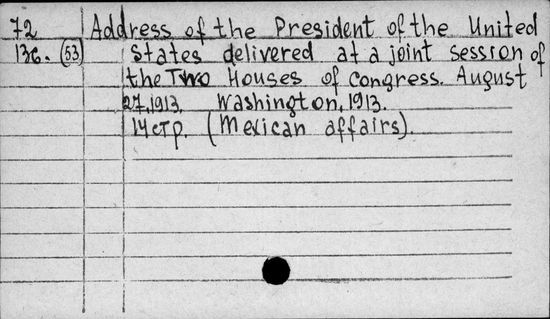 72 Address of the President of the United
136. (53) States delivered at a joint session of
the Two Houses of Congress. August
27, 1913. Washington, 1913.
14 стр. (Mexican affairs).